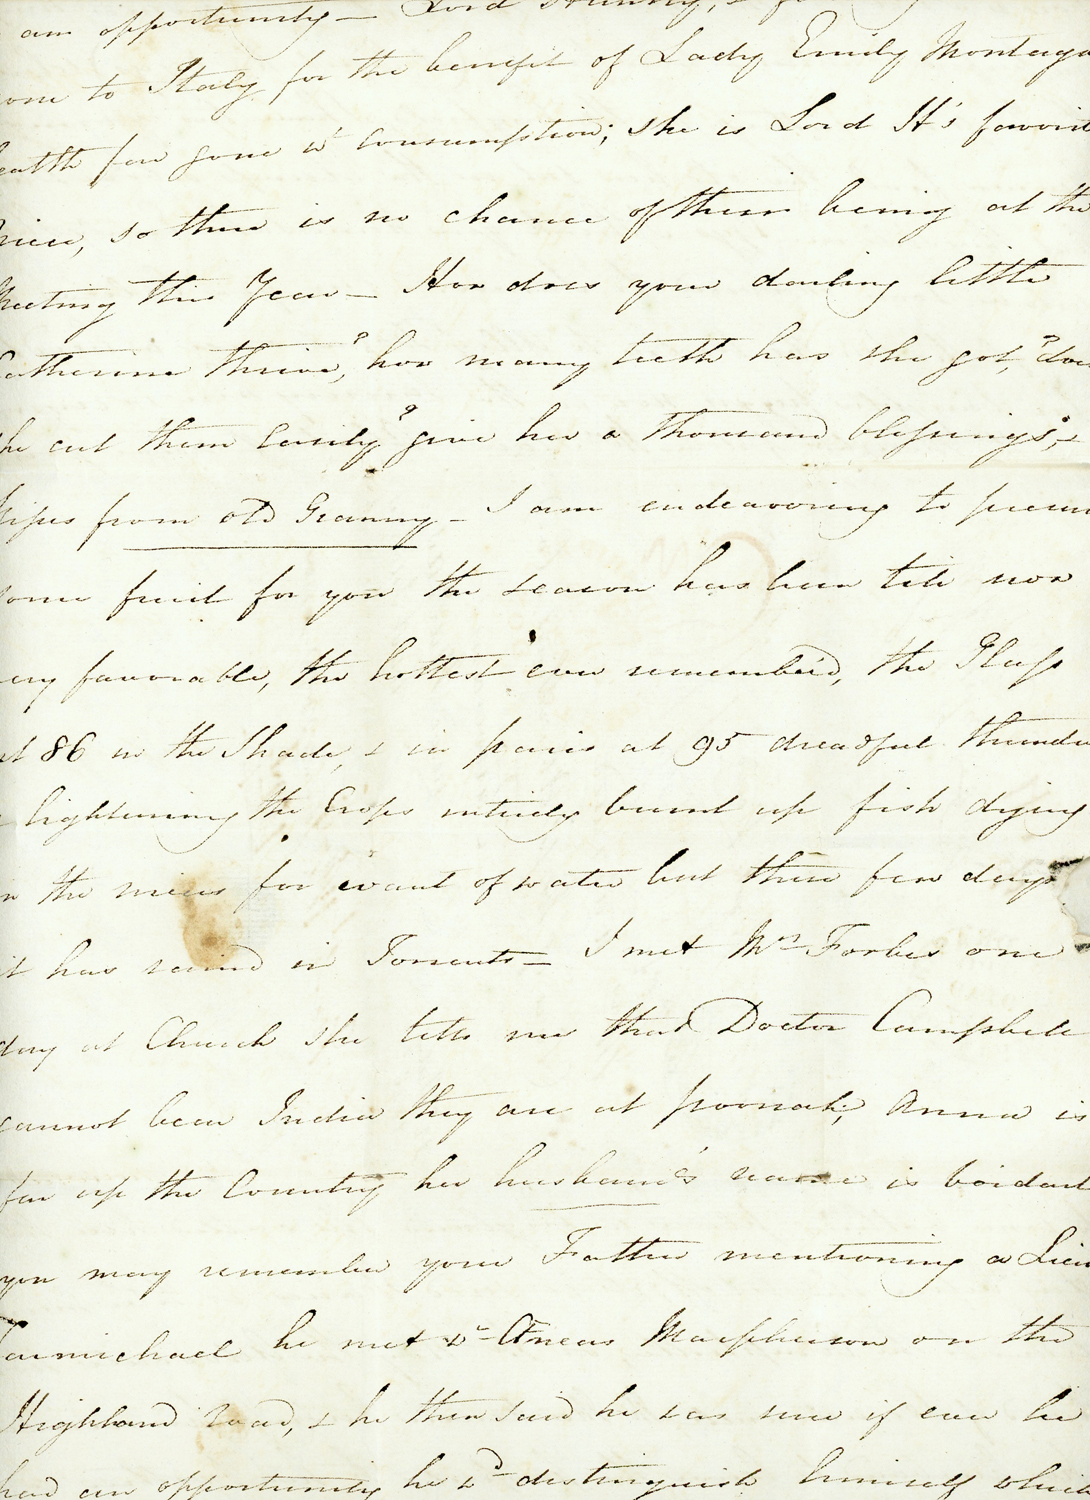 an opportunity — Lord
gone to Italy for the benefit of Lady Emily Montagu
health far gone wt consumption; she is Lord H's favorit
niece, so there is no chance of their being at the
Meeting this Year — How does your darling little
Catherine thrive,? how many teeth has she got,? does
she cut them easily? give her a thousand blessings, &
kisses from old Granny — I am endeavoring to procure
some fruit for you the season has been till now
very favorable, the hottest ever remember'd, the Glass
at 86 in the Shade, & in paris at 95 dreadful thunder
& lightening the Crops entirely burnt up fish dying
in the rivers for want of water but these few days
it has rained in Torrents — I met Mrs Forbes one
day at Church she tells me that Doctor Campbell
cannot bear India they are at poonah; Anna is
far up the Country her husband's name is
you may remember your Father mentioning a Lieut
Carmichael he met wt Æneas Macpherson on the
Highland road, & he then said he was sure if ever he
had an opportunity he wd distinguish himself which